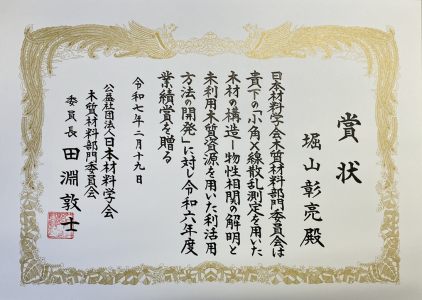 賞状
堀山彰亮殿
日本材料学会木質材料部門委員会は
貴下の「小角X線散乱測定を用いた
木材の構造－物性相関の解明と
未利用木質資源を用いた利活用
方法の開発」に対し令和六年度
業績賞を贈る
令和七年二月十九日
公益社団法人日本材料学会
木質材料部門委員会
委員長 田淵敦士